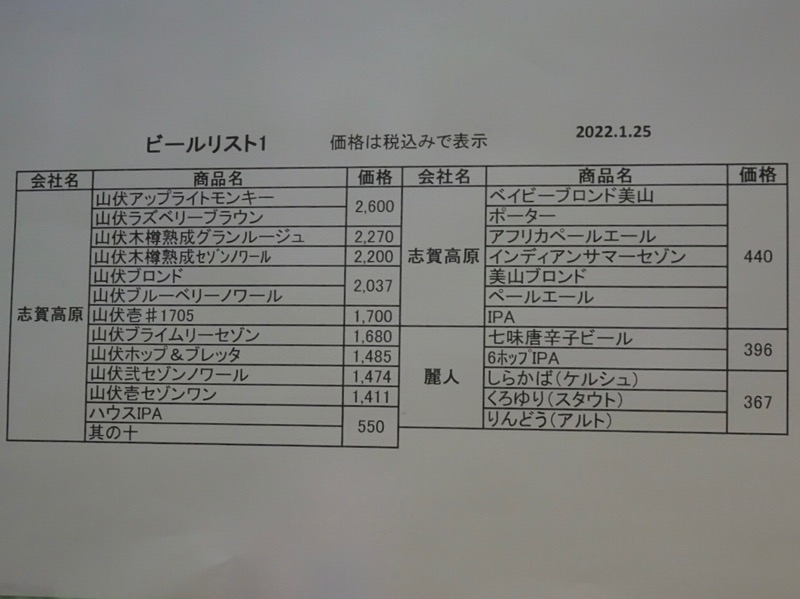 ビールリスト1 価格は税込みで表示 2022.1.25
会社名 商品名 価格
志賀高原
山伏アップライトモンキー 2,600
山伏ラズベリーブラウン
山伏木樽熟成グランルージュ 2,270
山伏木樽熟成ｾｿﾞﾝﾉﾜｰﾙ 2,200
山伏ブロンド 2,037
山伏ブルーベリーノワール
山伏壱♯1705 1,700
山伏ブライムリーセゾン 1,680
山伏ホップ＆ブレッタ 1,485
山伏弐セゾンノワール 1,474
山伏壱セゾンワン 1,411
ハウスIPA 550
其の十
会社名 商品名 価格
志賀高原
ベイビーブロンド美山 440
ポーター
アフリカペールエール
インディアンサマーセゾン
美山ブロンド
ペールエール
IPA
麗人
七味唐辛子ビール 396
6ﾎｯﾌﾟIPA
しらかば（ケルシュ） 367
くろゆり（スタウト）
りんどう（アルト）